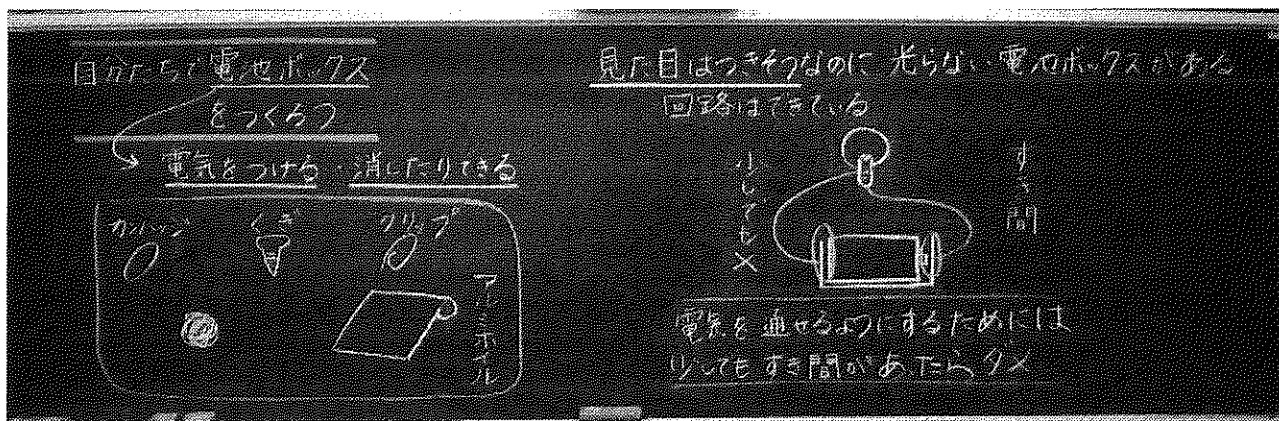 自分たちで電池ボックス
をつくろう
電気をつける・消したりできる
カンバッジ
くぎ
クリップ
アルミホイル
見た目はつきそうなのに 光らない 電池ボックスがある
回路はできている
少しでも×
すき間
電気を通せるようにするためには
少しでもすき間があったらダメ